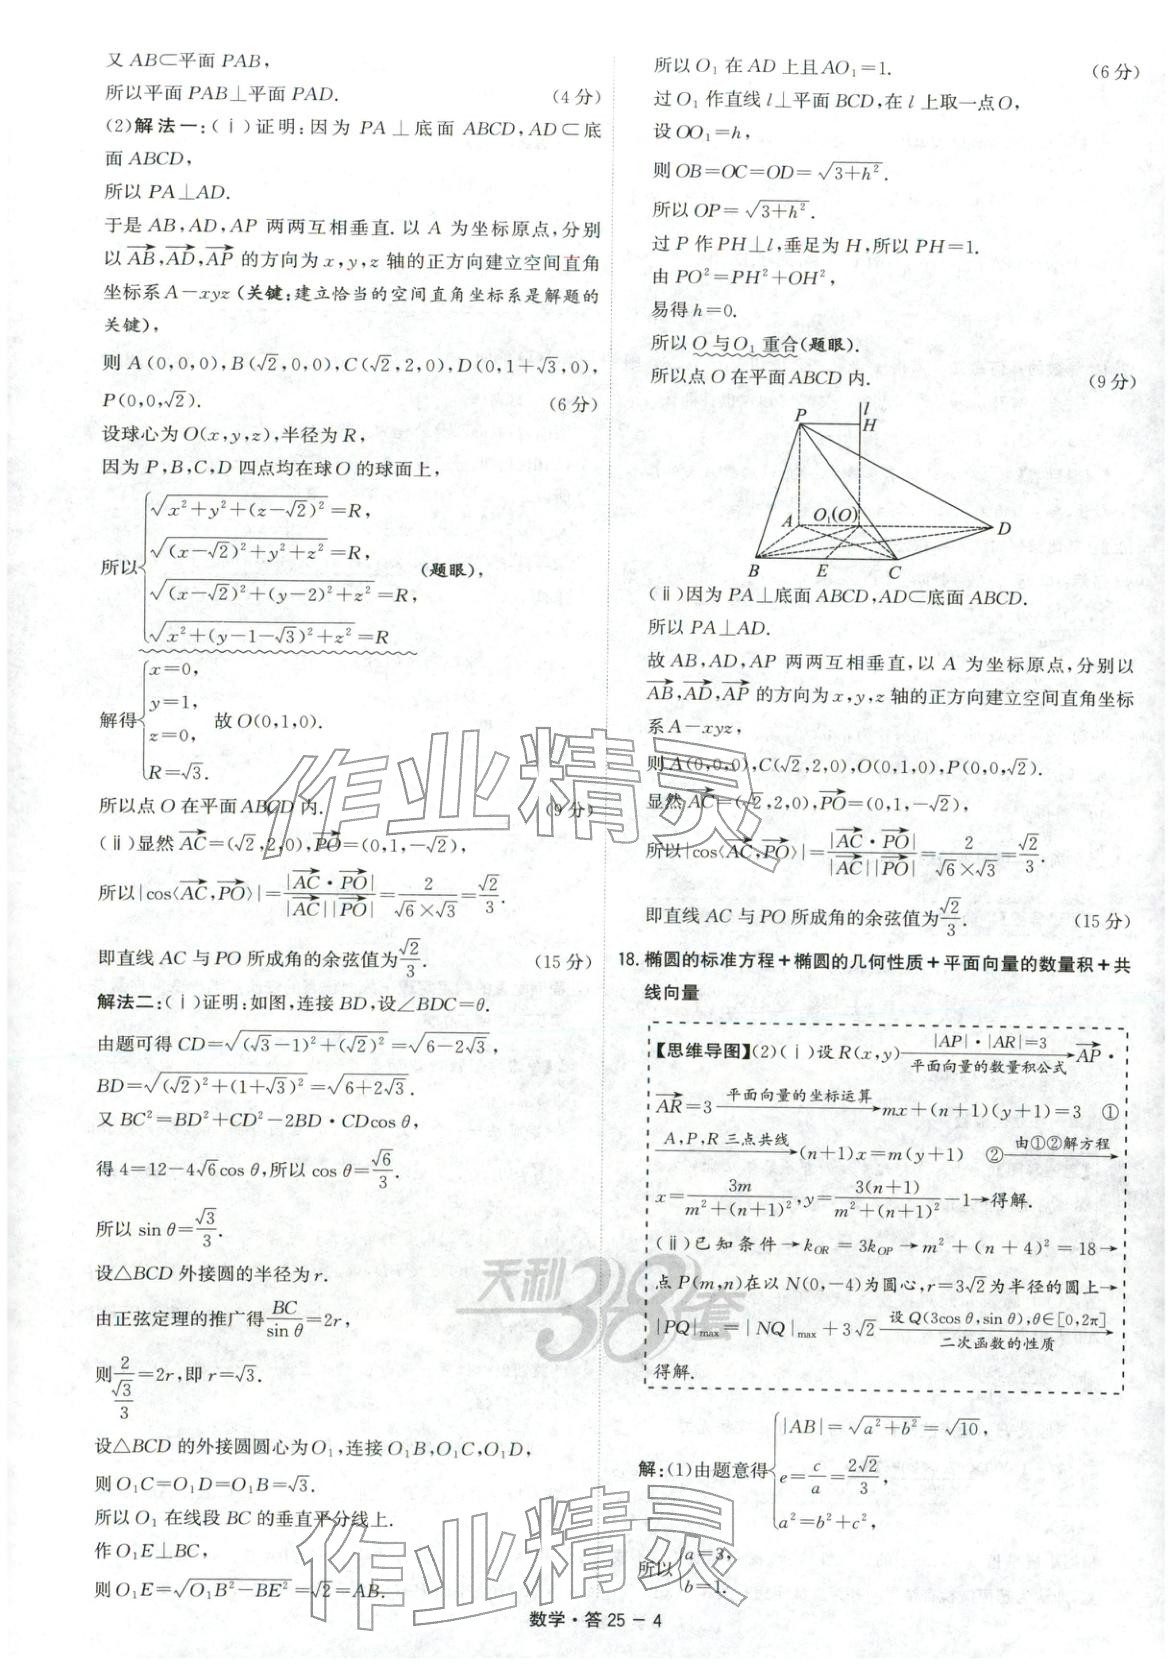 又 AB⊂平面 PAB,
所以平面 PAB⊥平面 PAD. (4 分)
(2)解法一:(ⅰ)证明:因为 PA⊥底面 ABCD,AD⊂底
面 ABCD,
所以 PA⊥AD.
于是 AB,AD,AP 两两互相垂直. 以 A 为坐标原点,分别
以 $\overrightarrow{AB}$,$\overrightarrow{AD}$,$\overrightarrow{AP}$ 的方向为 x,y,z 轴的正方向建立空间直角
坐标系 A-xyz (关键:建立恰当的空间直角坐标系是解题的
关键),
则 A(0,0,0),B(√2,0,0),C(√2,2,0),D(0,1+√3,0),
P(0,0,√2). (6 分)
设球心为 O(x,y,z),半径为 R,
因为 P,B,C,D 四点均在球 O 的球面上,
$\sqrt{x^2+y^2+(z-\sqrt{2})^2}=R,$
$\sqrt{(x-\sqrt{2})^2+y^2+z^2}=R,$
所以 (题眼),
$\sqrt{(x-\sqrt{2})^2+(y-2)^2+z^2}=R,$
$\sqrt{x^2+(y-1-\sqrt{3})^2+z^2}=R$
x=0,
y=1,
解得 故 O(0,1,0).
z=0,
R=√3.
所以点 O 在平面 ABCD 内. (9 分)
(ⅱ)显然 $\overrightarrow{AC}$=(√2,2,0),$\overrightarrow{PO}$=(0,1,-√2),
所以|cos⟨$\overrightarrow{AC}$,$\overrightarrow{PO}$⟩|=$\frac{|\overrightarrow{AC}·\overrightarrow{PO}|}{|\overrightarrow{AC}||\overrightarrow{PO}|}=\frac{2}{\sqrt{6}×\sqrt{3}}=\frac{\sqrt{2}}{3}$.
即直线 AC 与 PO 所成角的余弦值为$\frac{\sqrt{2}}{3}$. (15 分)
解法二:(ⅰ)证明:如图,连接 BD,设∠BDC=θ.
由题可得 CD=$\sqrt{(\sqrt{3}-1)^2+(\sqrt{2})^2}=\sqrt{6-2\sqrt{3}}$,
BD=$\sqrt{(\sqrt{2})^2+(1+\sqrt{3})^2}=\sqrt{6+2\sqrt{3}}$.
又 BC²=BD²+CD²-2BD·CDcos θ,
得 4=12-4√6cos θ,所以 cos θ=$\frac{\sqrt{6}}{3}$.
所以 sin θ=$\frac{\sqrt{3}}{3}$.
设△BCD 外接圆的半径为 r.
由正弦定理的推广得$\frac{BC}{\sin θ}$=2r,
则$\frac{2}{\frac{\sqrt{3}}{3}}$=2r,即 r=√3.
设△BCD 的外接圆圆心为 O₁,连接 O₁B,O₁C,O₁D,
则 O₁C=O₁D=O₁B=√3.
所以 O₁ 在线段 BC 的垂直平分线上.
作 O₁E⊥BC,
则 O₁E=$\sqrt{O_1B^2-BE^2}=\sqrt{2}$=AB.
所以 O₁ 在 AD 上且 AO₁=1. (6 分)
过 O₁ 作直线 l⊥平面 BCD,在 l 上取一点 O,
设 OO₁=h,
则 OB=OC=OD=$\sqrt{3+h^2}$.
所以 OP=$\sqrt{3+h^2}$.
过 P 作 PH⊥l,垂足为 H,所以 PH=1.
由 PO²=PH²+OH²,
易得 h=0.
所以 O 与 O₁ 重合(题眼).
所以点 O 在平面 ABCD 内. (9 分)
l
P H
A O₁(O) D
B E C
(ⅱ)因为 PA⊥底面 ABCD,AD⊂底面 ABCD.
所以 PA⊥AD.
故 AB,AD,AP 两两互相垂直,以 A 为坐标原点,分别以
$\overrightarrow{AB}$,$\overrightarrow{AD}$,$\overrightarrow{AP}$ 的方向为 x,y,z 轴的正方向建立空间直角坐标
系 A-xyz,
则 A(0,0,0),C(√2,2,0),O(0,1,0),P(0,0,√2).
显然 $\overrightarrow{AC}$=(√2,2,0),$\overrightarrow{PO}$=(0,1,-√2),
所以|cos⟨$\overrightarrow{AC}$,$\overrightarrow{PO}$⟩|=$\frac{|\overrightarrow{AC}·\overrightarrow{PO}|}{|\overrightarrow{AC}||\overrightarrow{PO}|}=\frac{2}{\sqrt{6}×\sqrt{3}}=\frac{\sqrt{2}}{3}$.
即直线 AC 与 PO 所成角的余弦值为$\frac{\sqrt{2}}{3}$. (15 分)
18. 椭圆的标准方程+椭圆的几何性质+平面向量的数量积+共
线向量
【思维导图】(2)(ⅰ)设 R(x,y) $\xrightarrow[平面向量的数量积公式]{|AP|·|AR|=3}$ $\overrightarrow{AP}$·
$\overrightarrow{AR}$=3 $\xrightarrow{平面向量的坐标运算}$ mx+(n+1)(y+1)=3 ①
$\xrightarrow{A,P,R 三点共线}$ (n+1)x=m(y+1) ② $\xrightarrow{由①②解方程}$
x=$\frac{3m}{m^2+(n+1)^2}$,y=$\frac{3(n+1)}{m^2+(n+1)^2}$-1→得解.
(ⅱ)已知条件→$k_{OR}=3k_{OP}$→m²+(n+4)²=18→
点 P(m,n)在以 N(0,-4)为圆心,r=3√2为半径的圆上→
|PQ|$_{max}$=|NQ|$_{max}$+3√2 $\xrightarrow[二次函数的性质]{设 Q(3cos θ,sin θ),θ∈[0,2π]}$
得解.
|AB|=$\sqrt{a^2+b^2}=\sqrt{10}$,
解:(1)由题意得 e=$\frac{c}{a}=\frac{2\sqrt{2}}{3}$,
a²=b²+c²,
所以 a=3,
b=1.
数学·答 25 - 4
作业精灵
天利38套
作业精灵